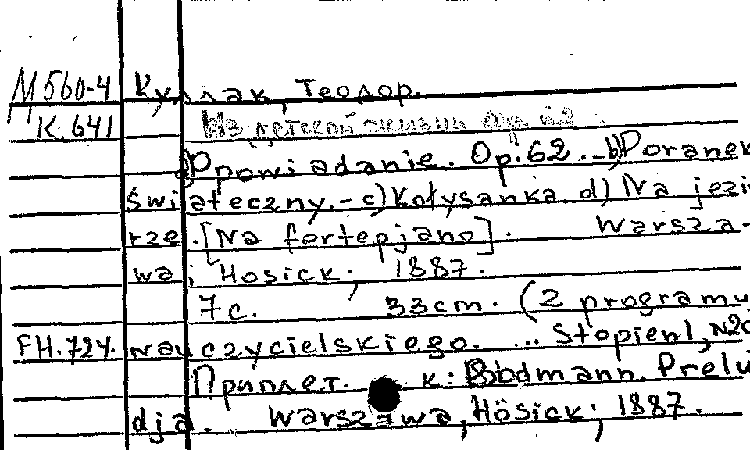 М560-4 Куллак, Теодор.
К.641 Из детской жизни Op.62.
a) Opowiadanie. Op.62. – b) Poranek
świąteczny. – c) Kołysanka. d) Na jezio
rze. [Na fortepjano]. Warsza-
wa, Hosick, 1887.
7 с. 33cm. (2 programu
FH.724. nauczycielskiego. .. Stopień 1, №20
Приплет. к: Bodmann. Prelu
dja. Warszawa, Hösick, 1887.